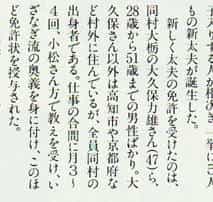 もの新太夫が誕生した。
　新しく太夫の免許を受けたのは、
同村大栃の大久保力雄さん(47)ら、
28歳から51歳までの男性ばかり。大
久保さん以外は高知市や京都府な
ど村外に住んでいるが、全員同村の
出身者である。仕事の合間に月3〜
4回、小松さん方で教えを受け、い
ざなぎ流の奥義を身に付け、このほ
ど免許状を授与された。